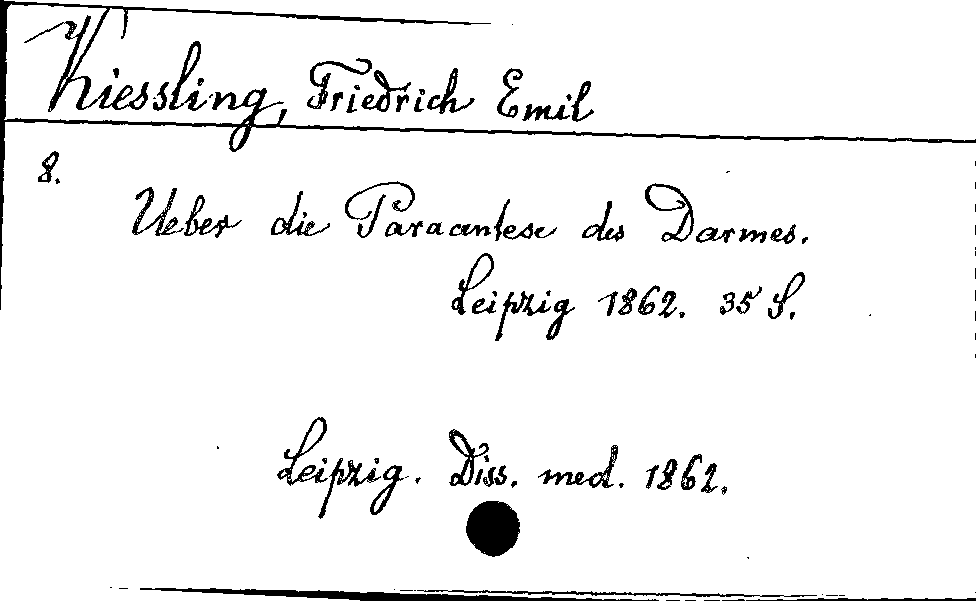 Kiessling, Friedrich Emil
8.
Ueber die Paracentese des Darmes.
Leipzig 1862. 35 S.
Leipzig. Diss. med. 1862.